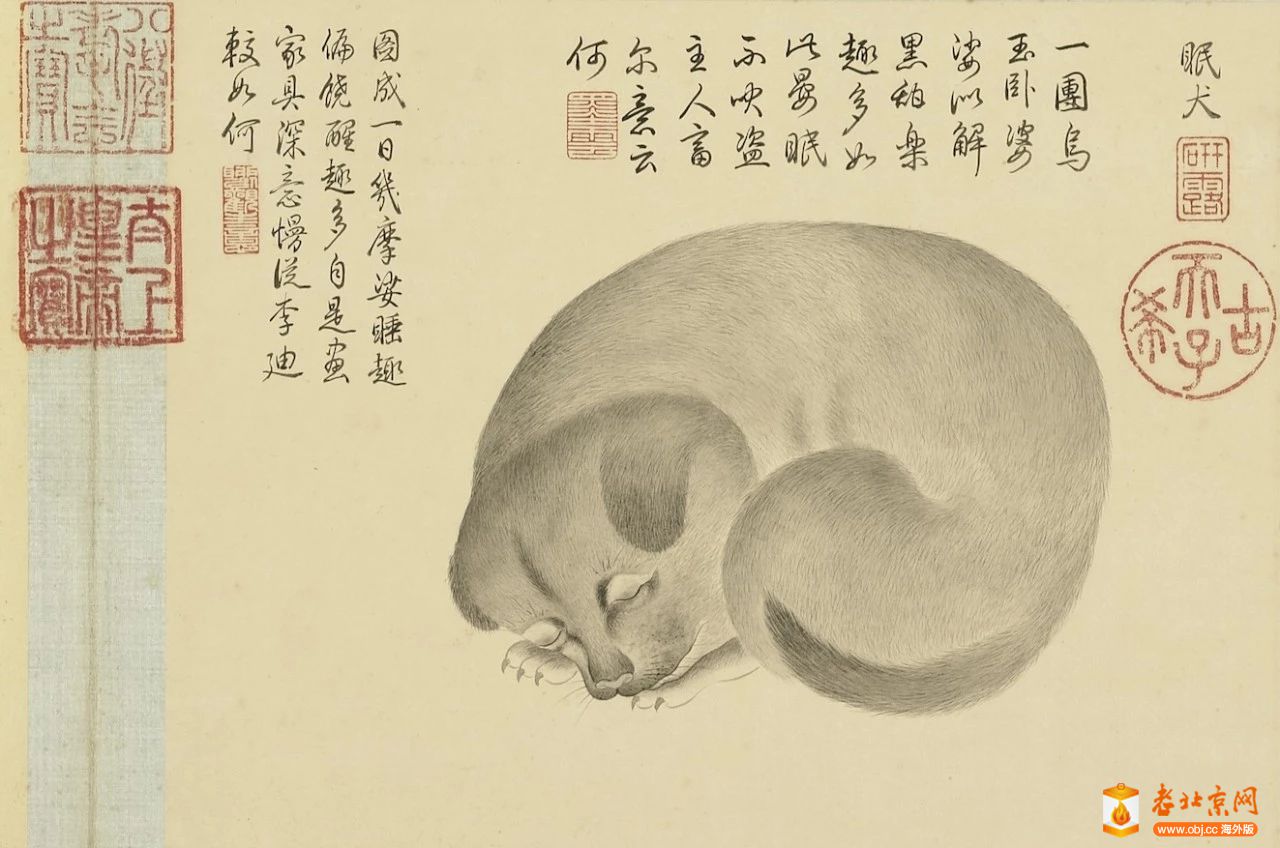 眠犬
研露
古希天子
一團烏
玉卧婆
娑以解
黑甜樂
趣多如
此晏眠
不吠盜
主人畜
尔意云
何
圖成一日幾摩娑睡趣
偏饒醒趣多自是畫
家具深意慢说李迪
較如何
八徵耄念之寶
太上皇帝之寶
老北京网
www.obj.cc 海外版